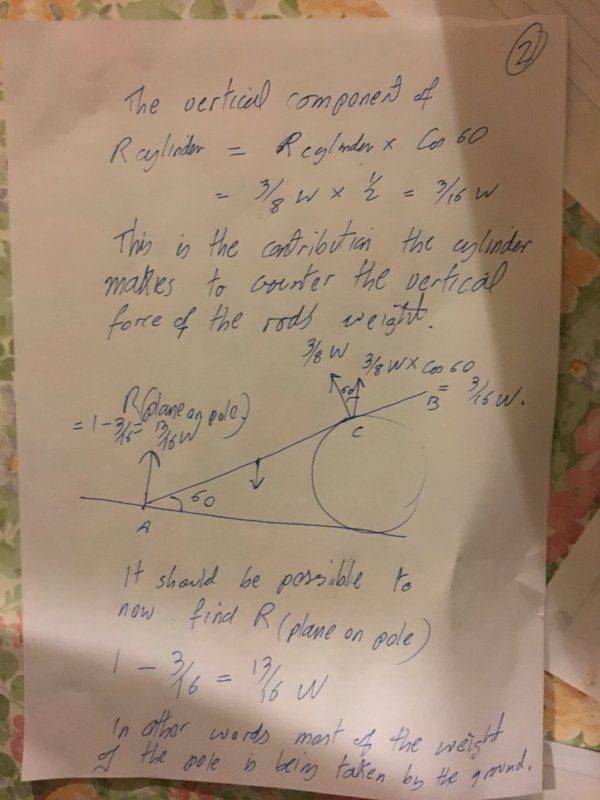 2
The vertical component of
R cylinder = R cylinder × Cos 60
= 3/8 W × 1/2 = 3/16 W
This is the contribution the cylinder
makes to counter the vertical
force of the rods weight.
3/8 W
3/8 W × Cos 60
= 3/16 W.
60
B
C
R (plane on pole)
= 1 - 3/16 = 13/16 W
60
A
It should be possible to
now find R (plane on pole)
1 - 3/16 = 13/16 W
In other words most of the weight
of the pole is being taken by the ground.